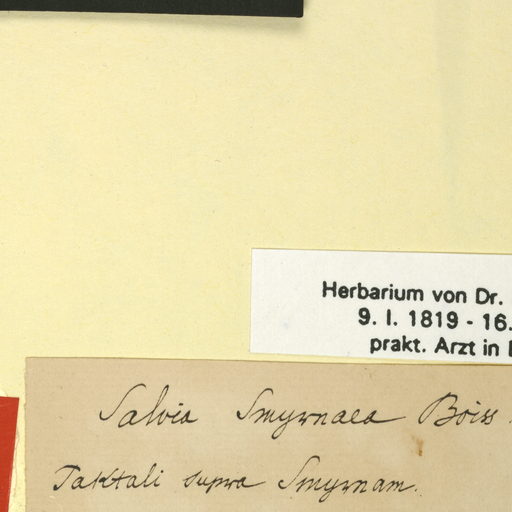 Herbarium von Dr.
9. I. 1819 - 16.
prakt. Arzt in
Salvia Smyrnaea Boiss.
Taktali supra Smyrnam.